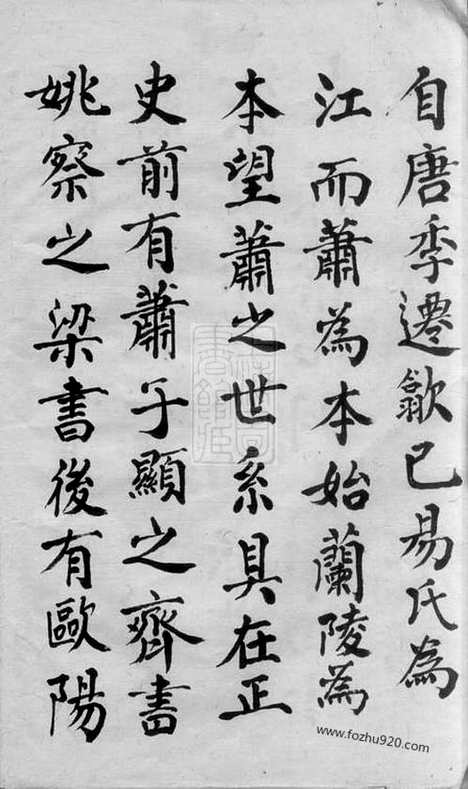 自唐季遷歙已易氏為
江而蕭為本始蘭陵為
本望蕭之世系具在正
史前有蕭子顯之齊書
姚察之梁書後有歐陽
www.fozhu920.com